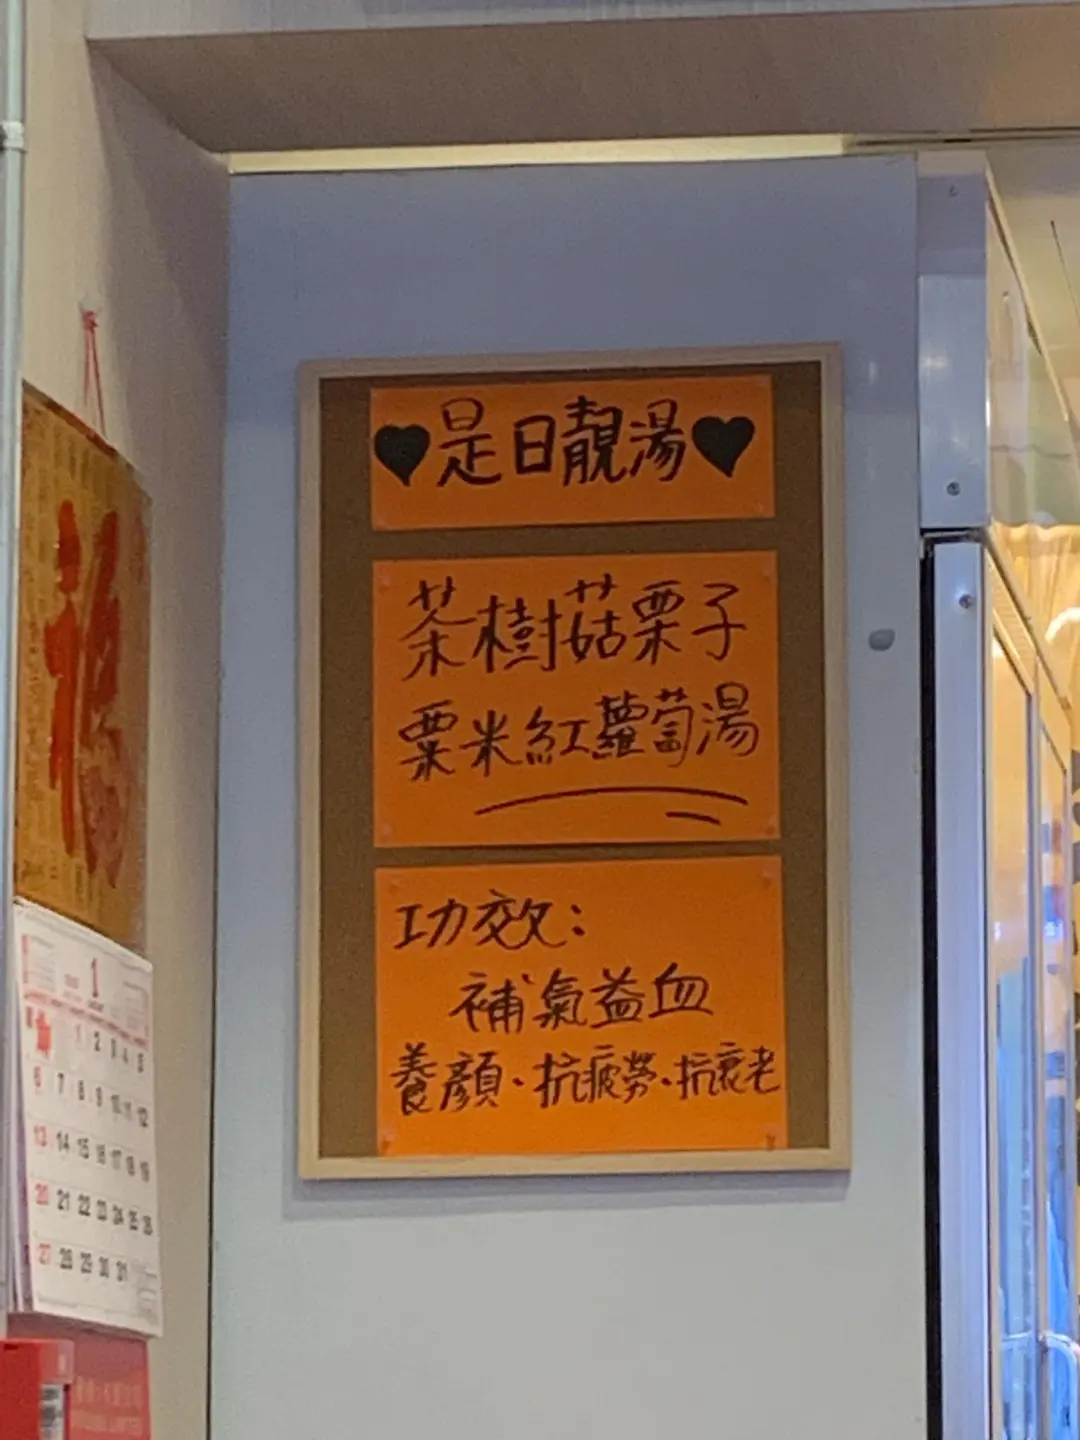 ♥是日靚湯♥
茶樹菇栗子
粟米紅蘿蔔湯
功效：
補氣益血
養顏、抗疲勞、抗衰老
福
1
1 2 3 4 5
6 7 8 9 10 11 12
13 14 15 16 17 18 19
20 21 22 23 24 25 26
27 28 29 30 31